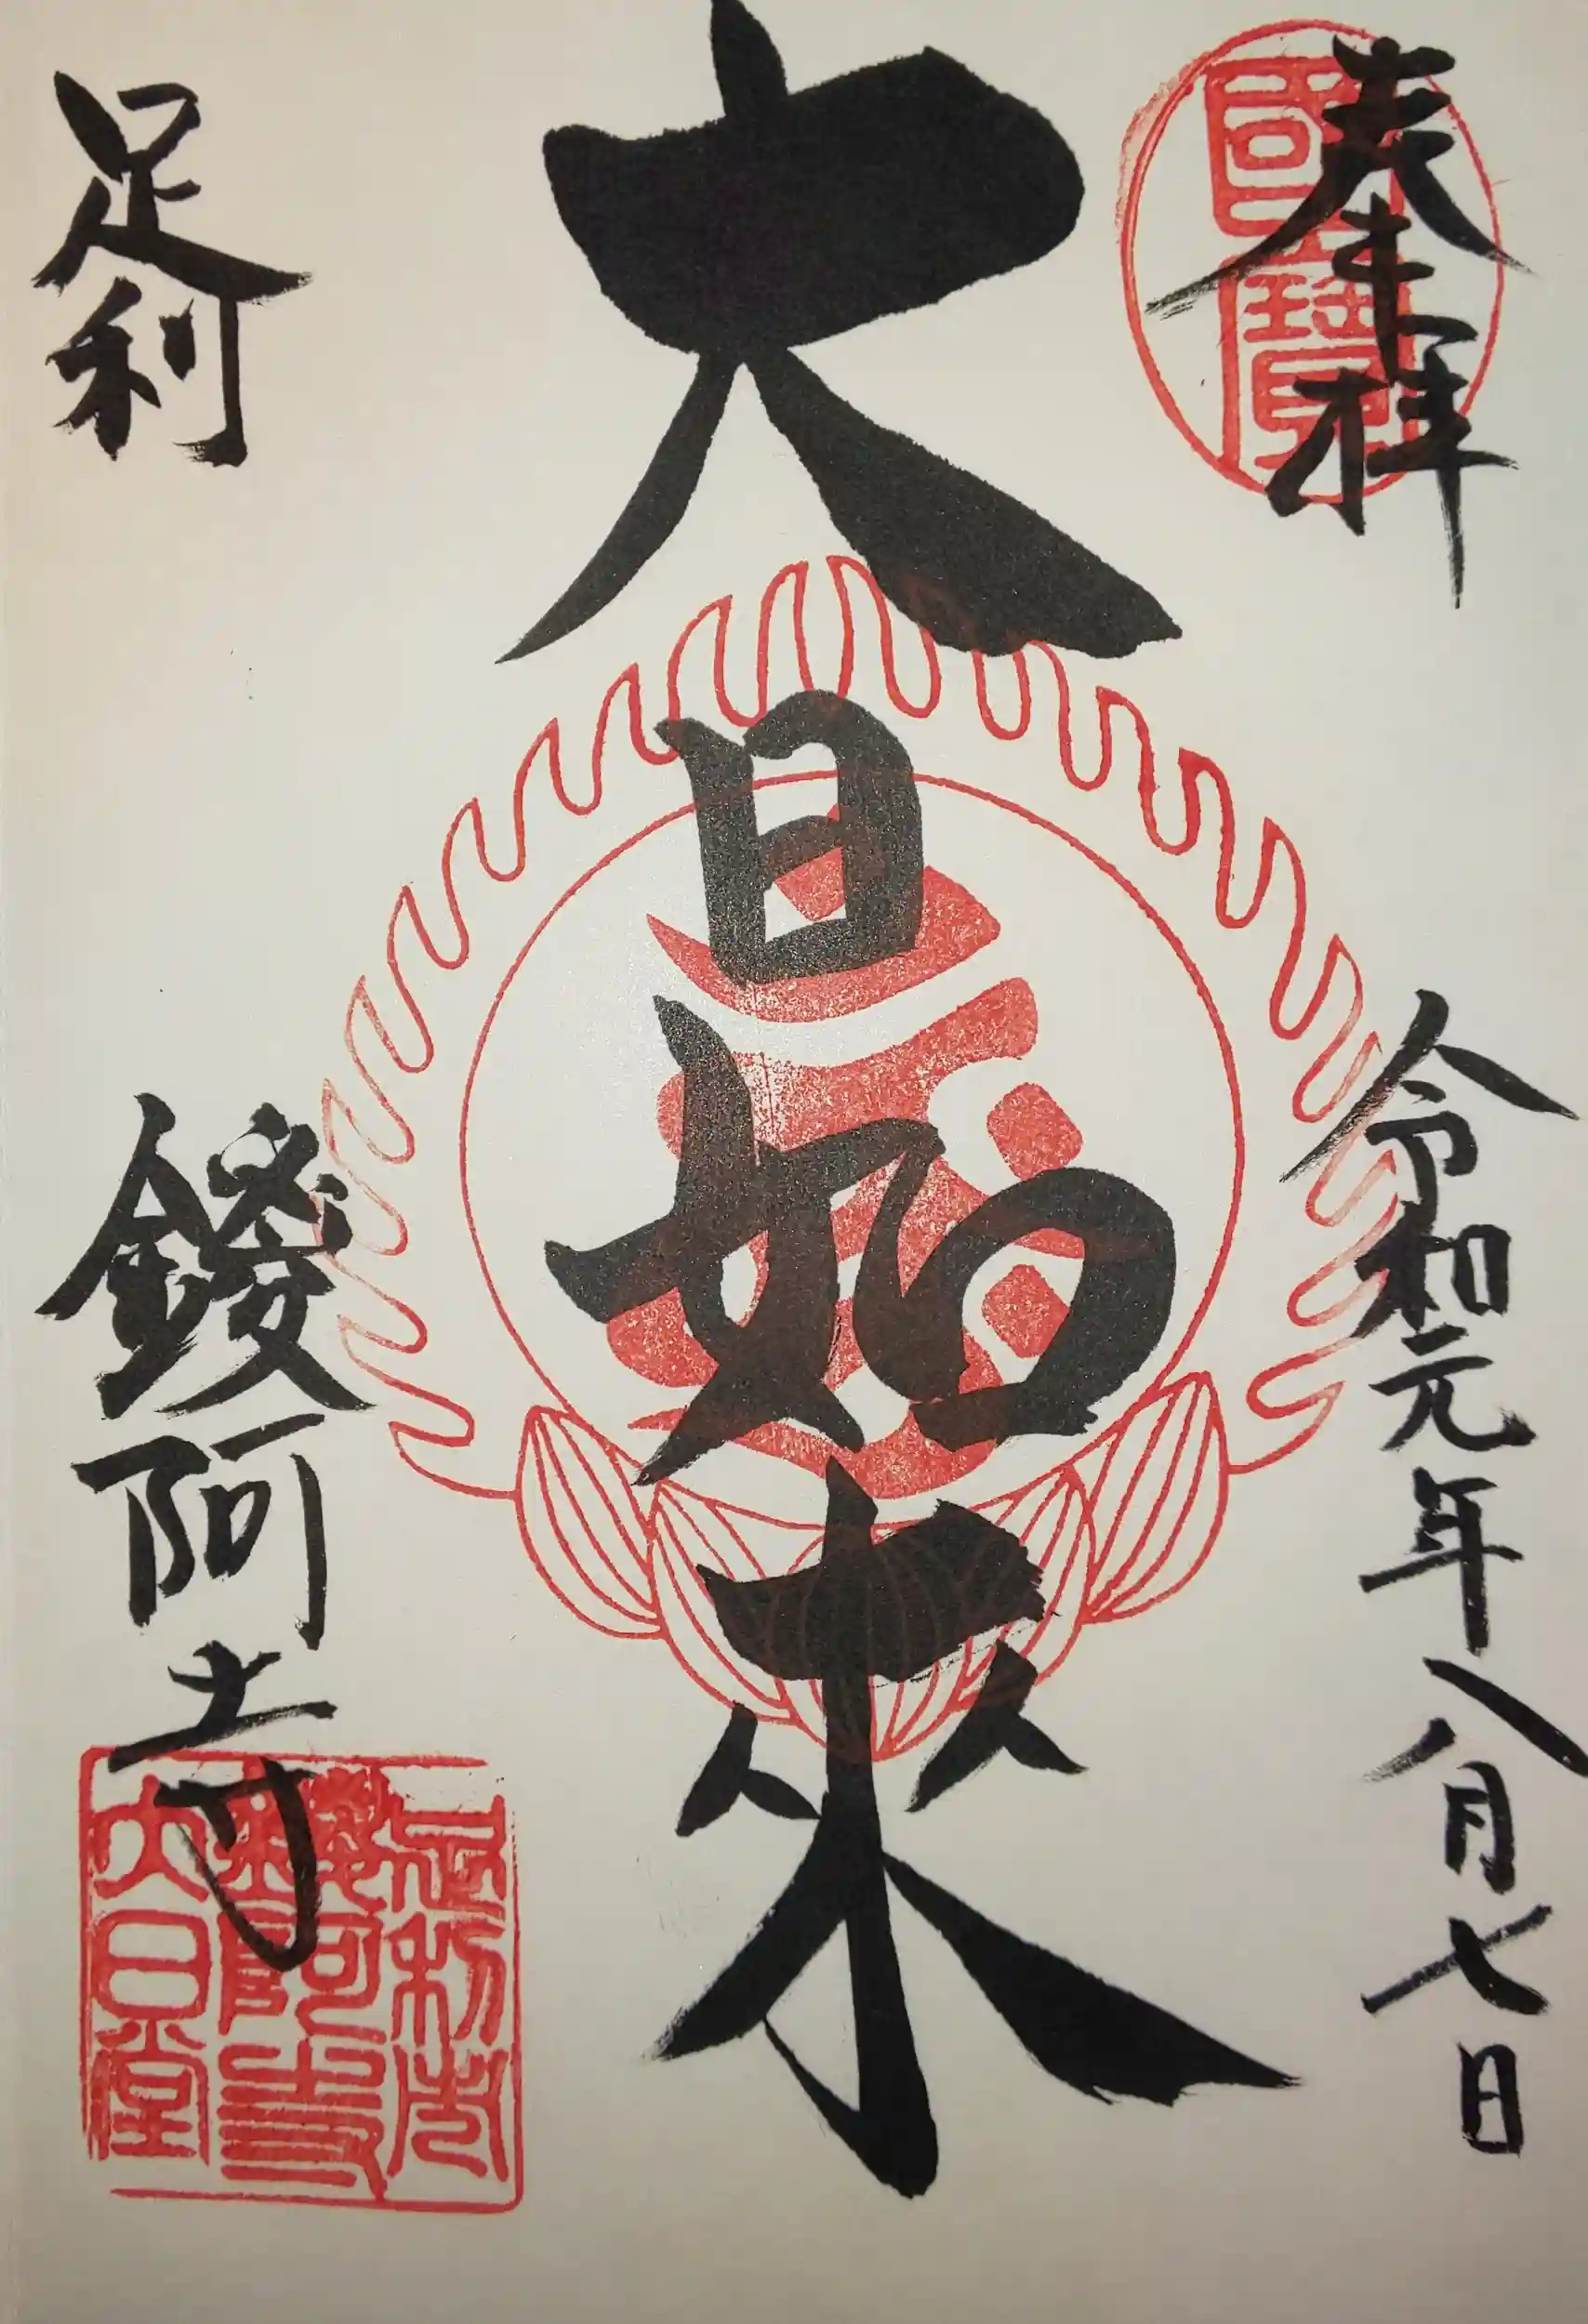 奉拝
國寶
令和元年八月七日
大日如来
足利
鑁阿寺
足利市
鑁阿寺
大日堂